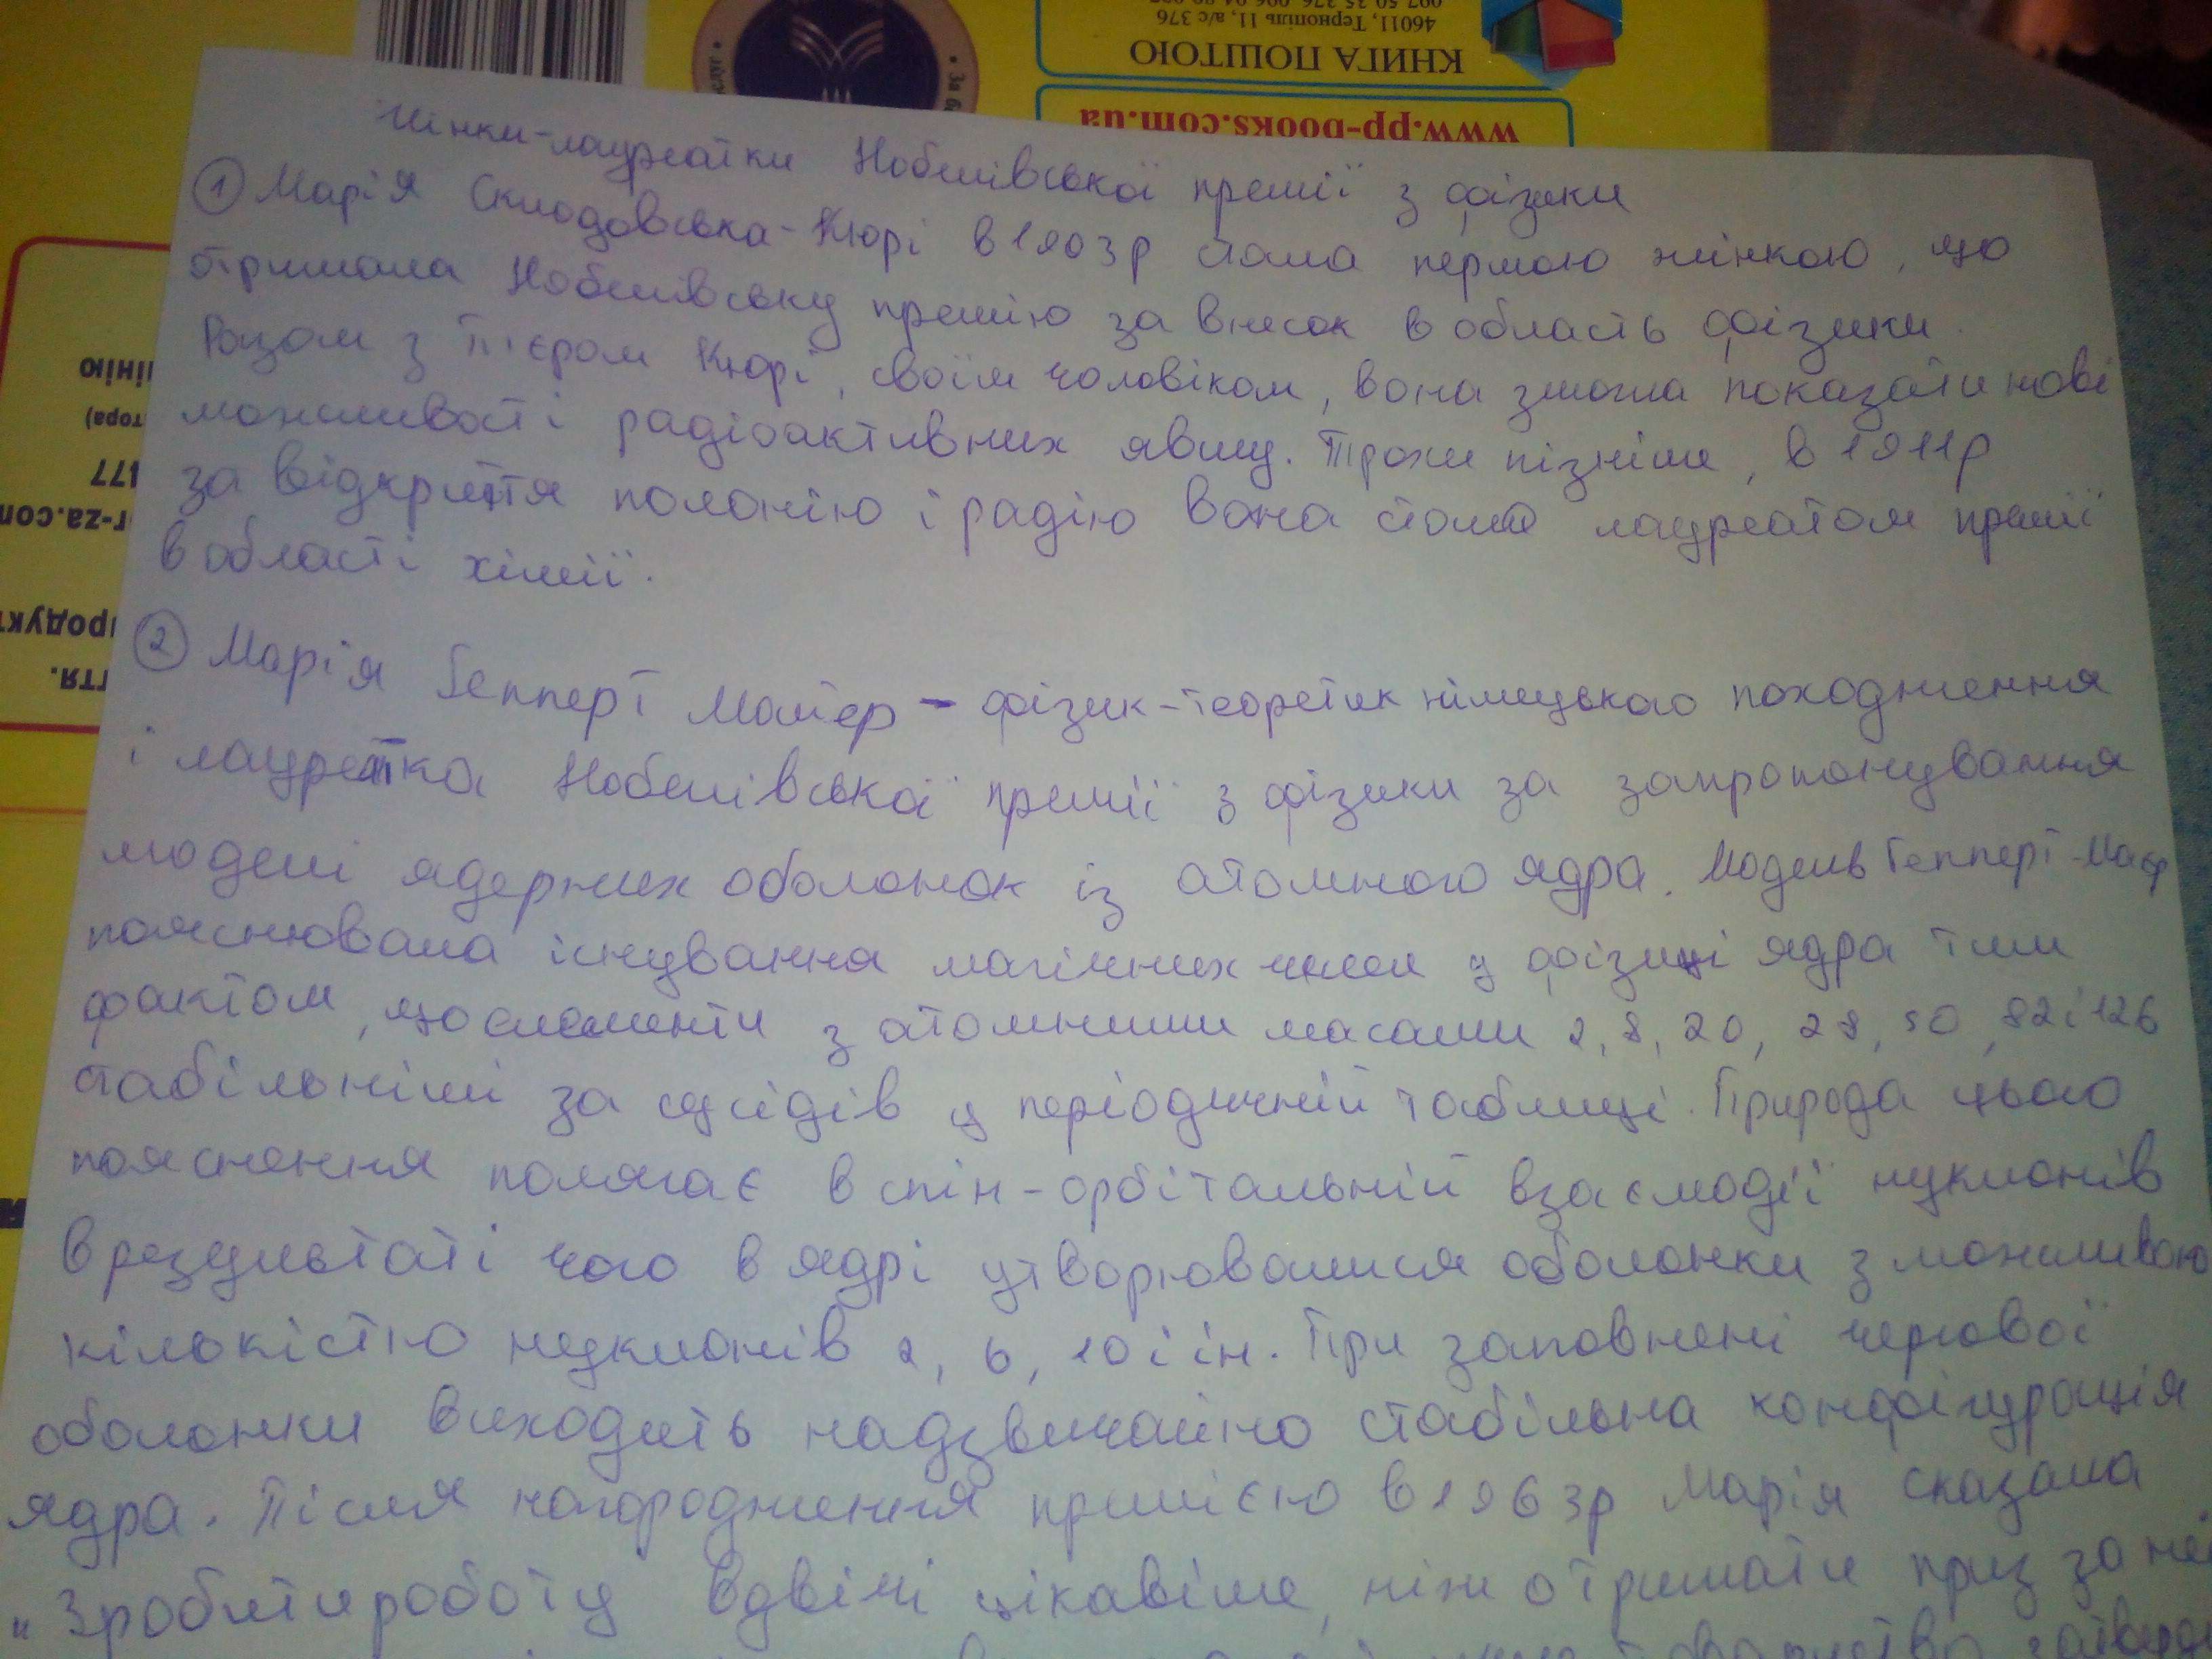 097 50 35 376, 096 04 80
46011, Тернопіль 11, а/с 376
КНИГА ПОШТОЮ
www.pp-books.com.ua
інію
тора)
477
r-za.com
родукт
ття.
Жінки-лауреатки Нобелівської премії з фізики
① Марія Склодовська-Кюрі в 1903р стала першою жінкою, що
отримала Нобелівську премію за внесок в область фізики.
Разом з П'єром Кюрі, своїм чоловіком, вона змогла показати нові
можливості радіоактивних явищ. Трохи пізніше, в 1911р
за відкриття полонію і радію вона стала лауреатом премії
в області хімії.
② Марія Гепперт Майєр - фізик-теоретик німецького походження
і лауретка Нобелівської премії з фізики за запропонування
моделі ядерних оболонок із атомного ядра. Модель Гепперт-Маєр
пояснювала існування магічних чисел у фізиці ядра тим
фактом, що елементи з атомними масами 2, 8, 20, 28, 50, 82 і 126
стабільніші за сусідів у періодичній таблиці. Природа цього
пояснення полягає в спін-орбітальній взаємодії нуклонів
в результаті чого в ядрі утворювалися оболонки з можливою
кількістю нуклонів 2, 6, 10 і ін. При заповнені чергової
оболонки виходить надзвичайно стабільна конфігурація
ядра. Після нагородження премією в 1963р Марія сказала
"Зробити роботу вдвічі цікавіше, ніж отримати приз за неї